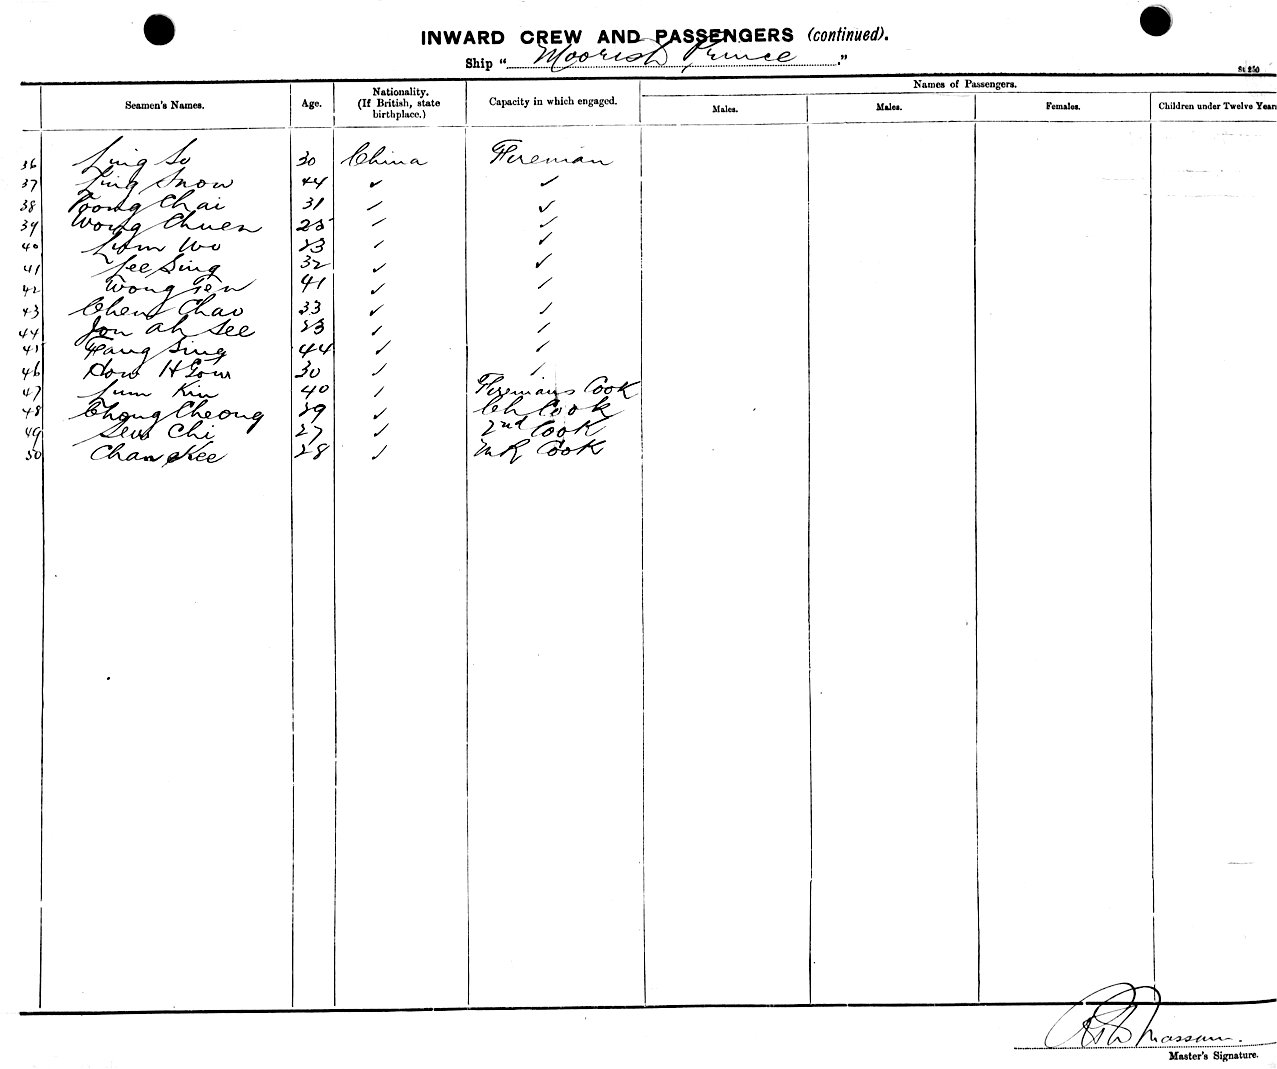 INWARD CREW AND PASSENGERS (continued).
Ship "Moorish Prince."
St 250
Seamen's Names. Age. Nationality. (If British, state birthplace.) Capacity in which engaged. Names of Passengers.
Males. Males. Females. Children under Twelve Years
36 Ling So 30 China Fireman
37 Ling Snow 44 ✓ ✓
38 Toong Chai 31 ✓ ✓
39 Wong Chuen 25 ✓ ✓
40 Lum Wo 23 ✓ ✓
41 Lee Sing 32 ✓ ✓
42 Wong Ten 41 ✓ ✓
43 Chen Chao 33 ✓ ✓
44 Jon ah See 23 ✓ ✓
45 Fang Sing 44 ✓ ✓
46 How 30 ✓ ✓
47 Lum Kin 40 ✓ Firemans Cook
48 Chong Cheong 29 ✓ Ch Cook
49 Sew Chi 27 ✓ 2nd Cook
50 Chan Kee 28 ✓ Cook
Master's Signature.